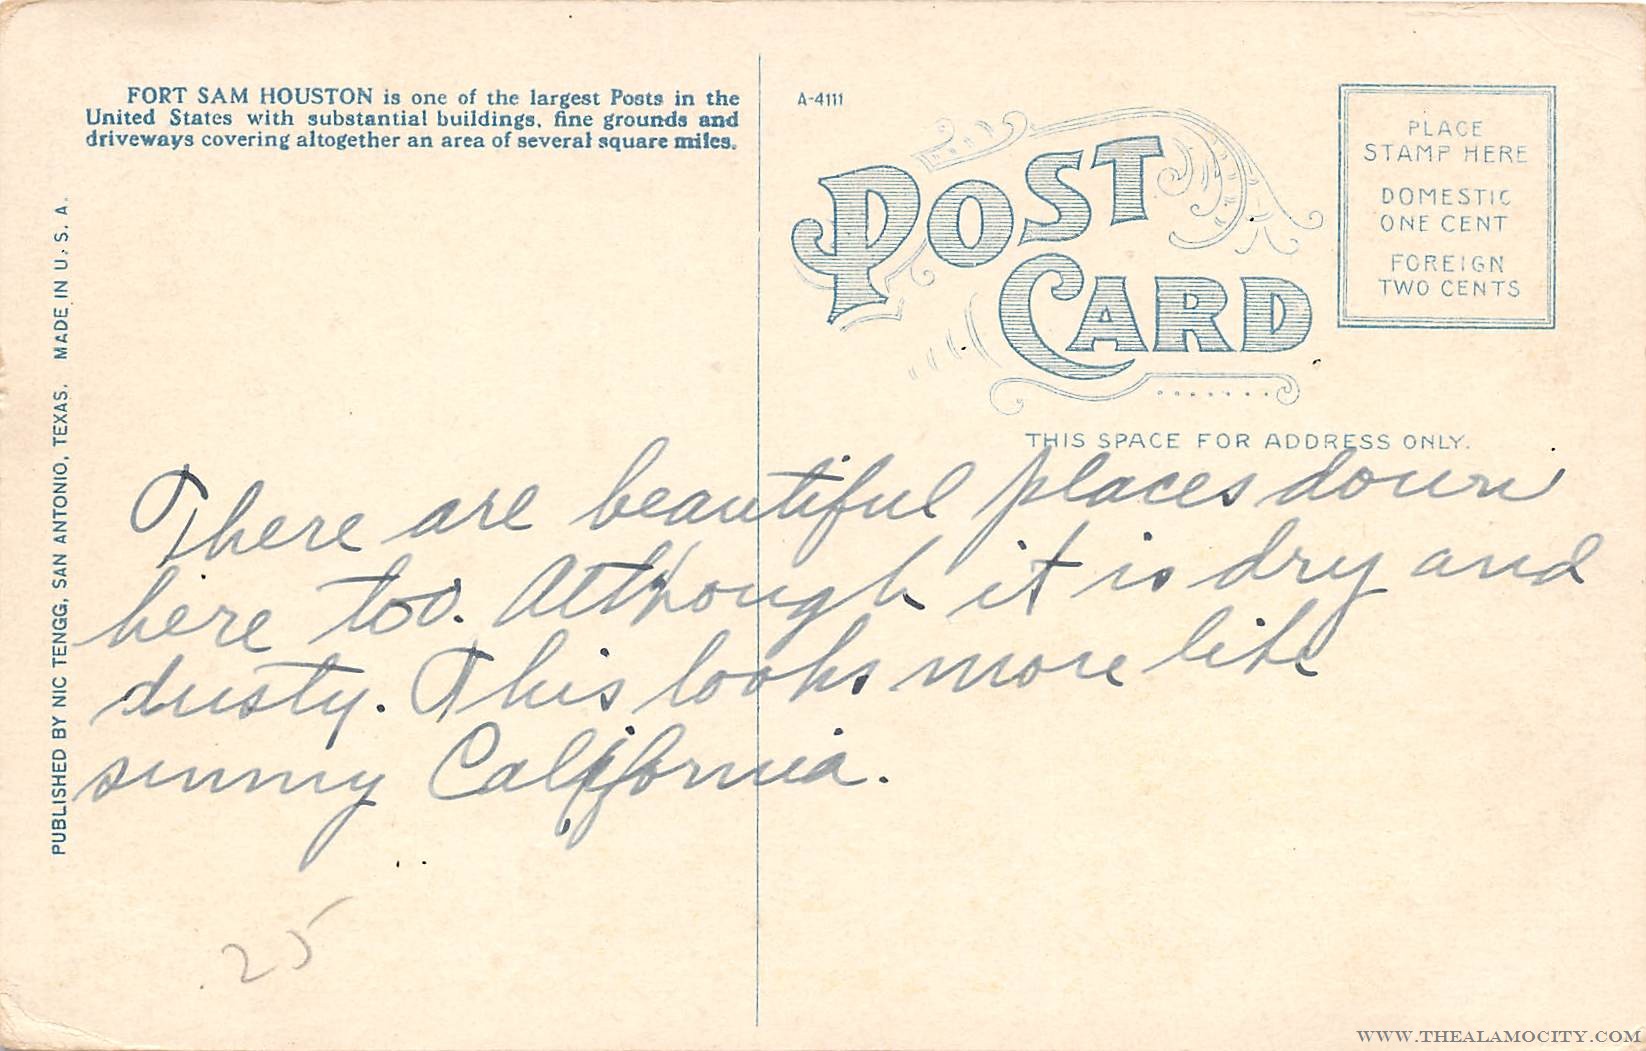 FORT SAM HOUSTON is one of the largest Posts in the
United States with substantial buildings, fine grounds and
driveways covering altogether an area of several square miles.
A-4111
POST
CARD
PLACE
STAMP HERE
DOMESTIC
ONE CENT
FOREIGN
TWO CENTS
THIS SPACE FOR ADDRESS ONLY.
PUBLISHED BY NIC TENGG, SAN ANTONIO, TEXAS. MADE IN U. S. A.
There are beautiful places down
here too. Although it is dry and
dusty. This looks more like
sunny California.
25
WWW.THEALAMOCITY.COM